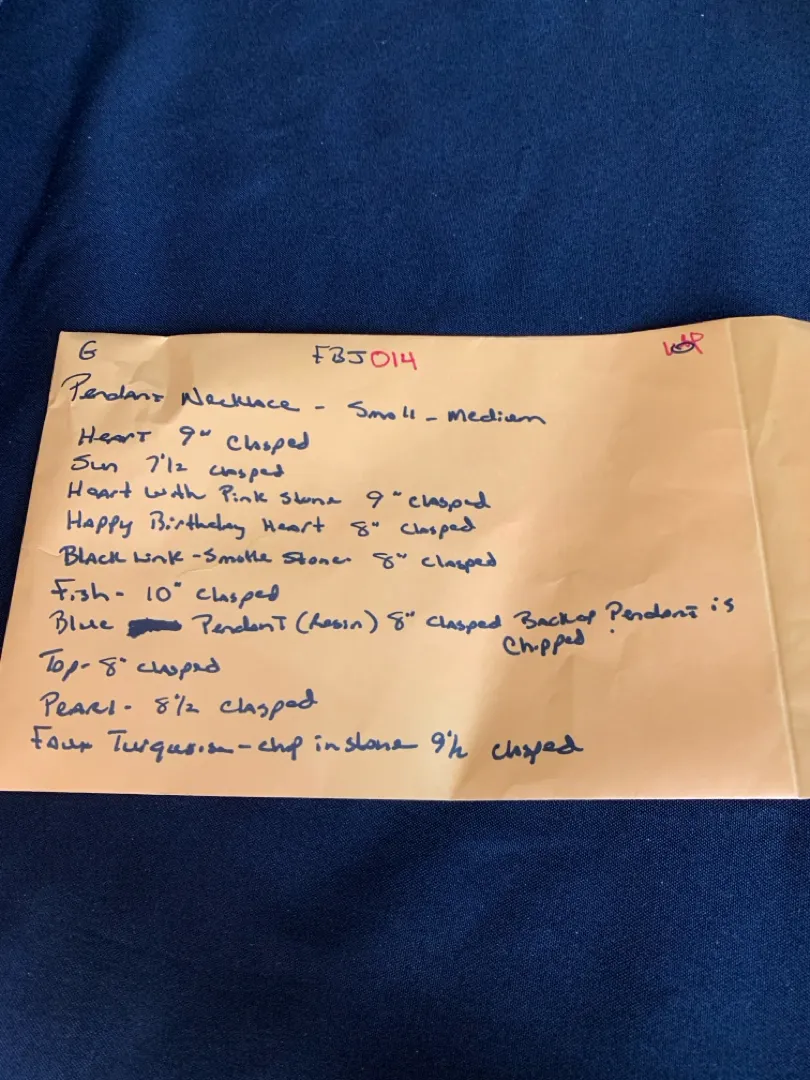 G FBJ014
Pendant Necklace - Small - medium
Heart 9" Clasped
Sun 7 1/2 clasped
Heart with Pink stone 9" clasped
Happy Birthday Heart 8" clasped
Black Link - Smoke Stone 8" clasped
Fish - 10" clasped
Blue Pendant (Resin) 8" clasped Back of Pendant is
Chipped.
Top - 8" clasped
Pearl - 8 1/2 clasped
Faux Turquoise - chip in stone 9 1/2 clasped